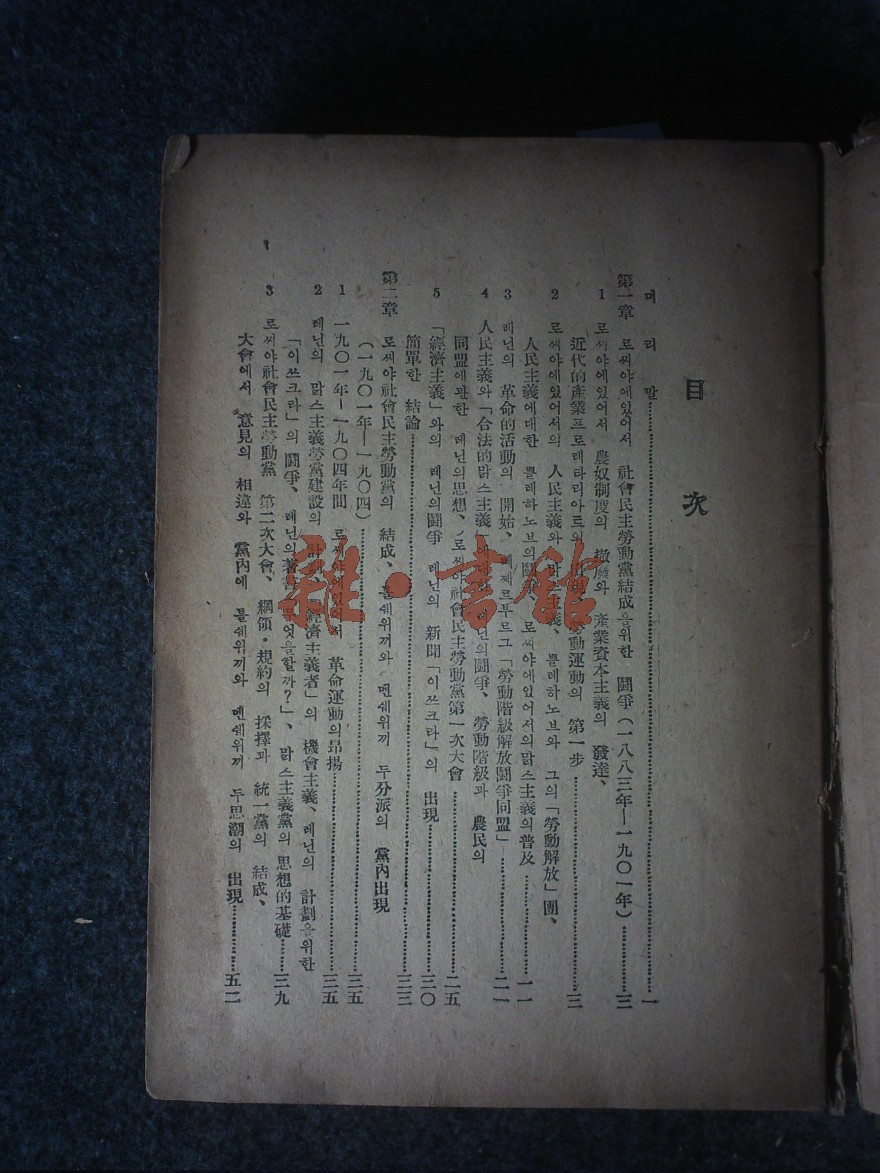 目 次
머 리 말 一
第一章 로씨야에있어서 社會民主勞動黨結成을위한 鬪爭(一八八三年—一九〇一年) 三
1 로씨야에있어서 農奴制度의 撤廢와 產業資本主義의 發達、
近代的產業프로레타리아트의 勞動運動의 第一步 三
2 로씨야에있어서의 人民主義와 맑스主義、쁠레하노브와 그의「勞動解放」團、
人民主義에대한 쁠레하노브의 로씨야에있어서의맑스主義의普及 一一
3 레닌의 革命的活動의 開始、 「勞動階級解放鬪爭同盟」 二一
4 人民主義와「合法的맑스主義」 레닌의鬪爭、勞動階級과 農民의
同盟에관한 레닌의思想、로씨야社會民主勞動黨第一次大會 二五
5 「經濟主義」와의 레닌의鬪爭 레닌의 新聞「이쓰크라」의 出現 三〇
簡單한 結論 三三
第二章 로씨야社會民主勞動黨의 結成、 볼쉐위끼와 멘쉐위끼 두分派의 黨內出現
(一九〇一年—一九〇四) 三五
1 一九〇一年—一九〇四年間 로씨야에있어서 革命運動의昂揚 三五
2 레닌의 맑스主義勞黨建設의 計劃、「經濟主義者」의 機會主義、레닌의 計劃을위한
「이쓰크라」의 鬪爭、레닌의著書 무엇을할까?」、맑스主義黨의思想的基礎 三九
3 로씨야社會民主勞動黨 第二次大會、綱領・規約의 採擇과 統一黨의 結成、
大會에서 意見의 相違와 黨內에 볼쉐위끼와 멘쉐위끼 두思潮의 出現 五二
雜・書館